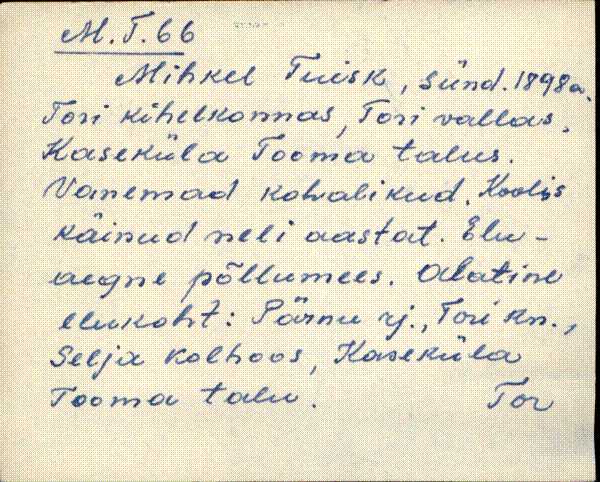 M.T.66
Mihkel Tuisk, sünd. 1898a.
Tori kihelkonnas, Tori vallas,
Kaseküla Tooma talus.
Vanemad kohalikud. Koolis
käinud neli aastat. Elu-
aegne põllumees. Alatine
elukoht: Pärnu rj., Tori kn.,
Selja kolhoos, Kaseküla
Tooma talu. Tor